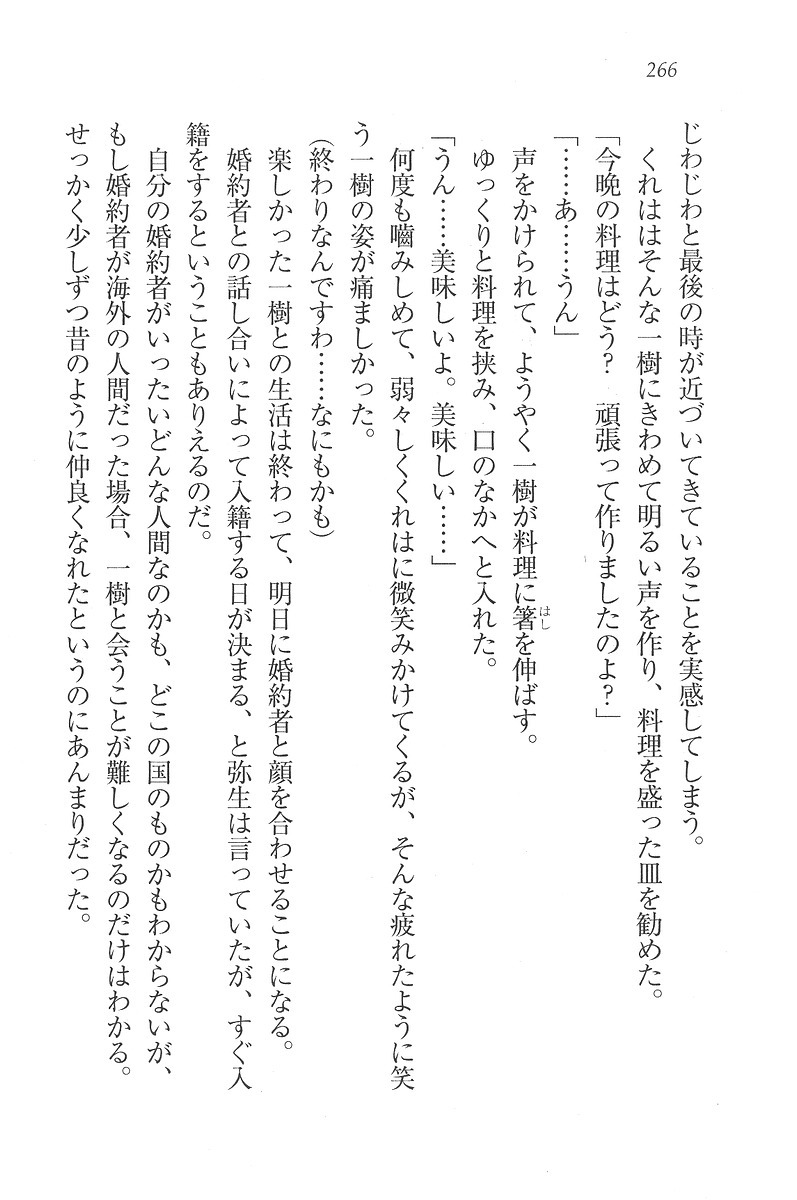 266
じわじわと最後の時が近づいてきていることを実感してしまう。
　くれははそんな一樹にきわめて明るい声を作り、料理を盛った皿を勧めた。
「今晩の料理はどう？　頑張って作りましたのよ？」
「……あ……うん」
　声をかけられて、ようやく一樹が料理に箸はしを伸ばす。
　ゆっくりと料理を挟み、口のなかへと入れた。
「うん……美味しいよ。美味しい……」
　何度も嚙みしめて、弱々しくくれはに微笑みかけてくるが、そんな疲れたように笑
う一樹の姿が痛ましかった。
（終わりなんですわ……なにもかも）
　楽しかった一樹との生活は終わって、明日に婚約者と顔を合わせることになる。
　婚約者との話し合いによって入籍する日が決まる、と弥生は言っていたが、すぐ入
籍をするということもありえるのだ。
　自分の婚約者がいったいどんな人間なのかも、どこの国のものかもわからないが、
もし婚約者が海外の人間だった場合、一樹と会うことが難しくなるのだけはわかる。
せっかく少しずつ昔のように仲良くなれたというのにあんまりだった。